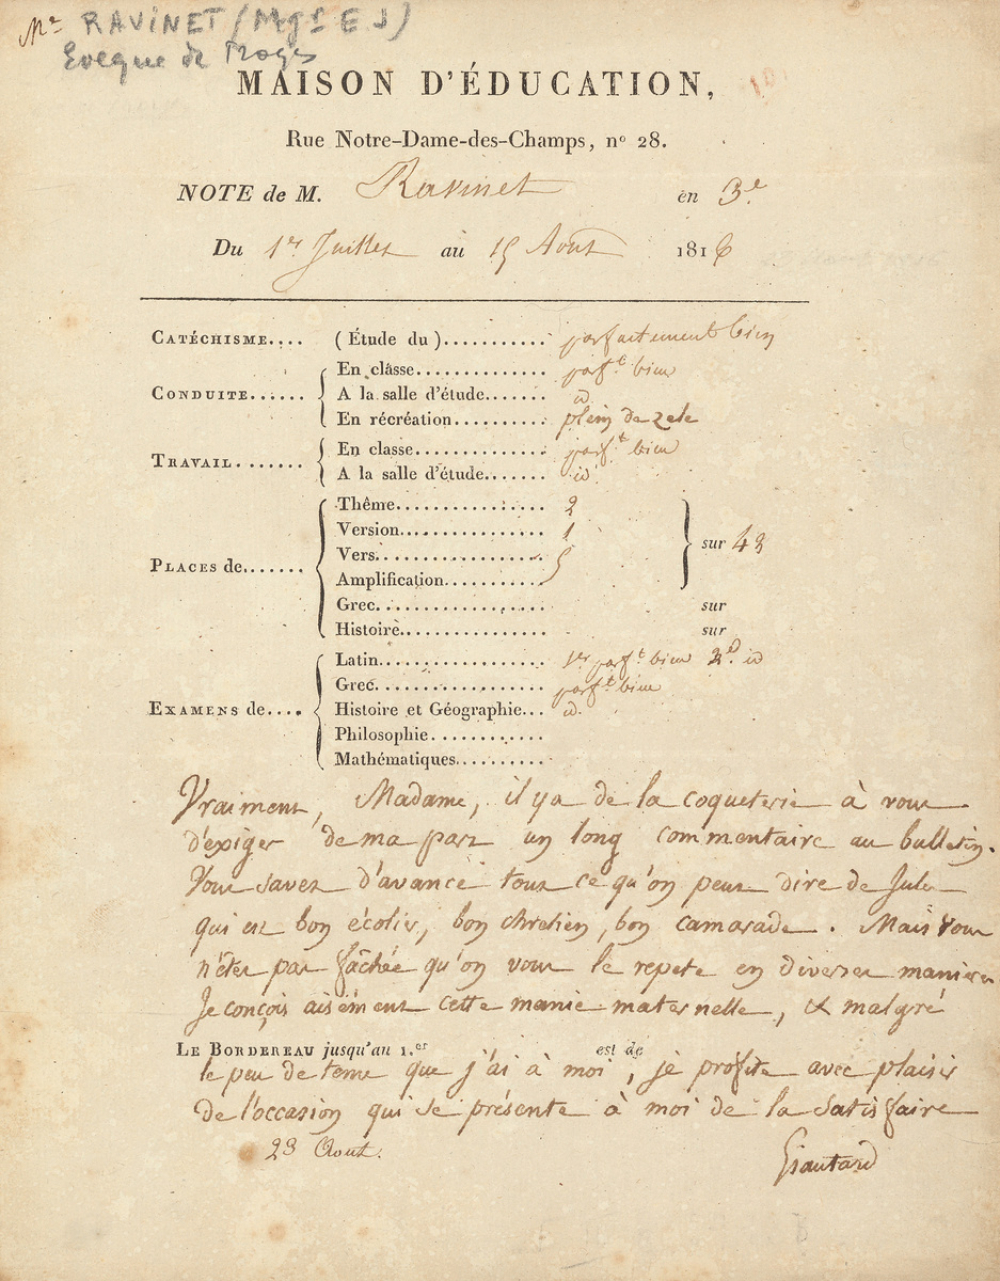 Mr RAVINET (Mgr E J)
Eveque de Troyes
MAISON D'ÉDUCATION,
Rue Notre-Dame-des-Champs, no 28.
NOTE de M. Ravinet en 3.e
Du 1er Juillet au 15 Aout 1816
CATÉCHISME.... (Étude du).......... parfaitement bien
CONDUITE...... En classe............. parf.t bien
A la salle d'étude....... id
En récréation.......... plein de zele
TRAVAIL....... En classe............. parf.t bien
A la salle d'étude....... id
PLACES de...... Thême............... 2
Version............... 1
sur 42
Vers................ 5
Amplification..........
Grec................ sur
Histoire.............. sur
EXAMENS de.... Latin................ 1er parf.t bien 2.d id
Grec................ parf.t bien
Histoire et Géographie... id.
Philosophie...........
Mathématiques.........
Vraiment, Madame, il y a de la coqueterie à vous
d'exiger de ma part un long commentaire au bulletin.
Vous savez d'avance tout ce qu'on peut dire de Jules
qui est bon écolier, bon chretien, bon camarade. Mais vous
n'êtes pas fâchée qu'on vous le repete en diverses manieres
Je conçois aisément cette manie maternelle, & malgré
LE BORDEREAU jusqu'au 1.er est de
le peu de tems que j'ai à moi, je profite avec plaisir
de l'occasion qui se présente à moi de la satisfaire
23 Aout.